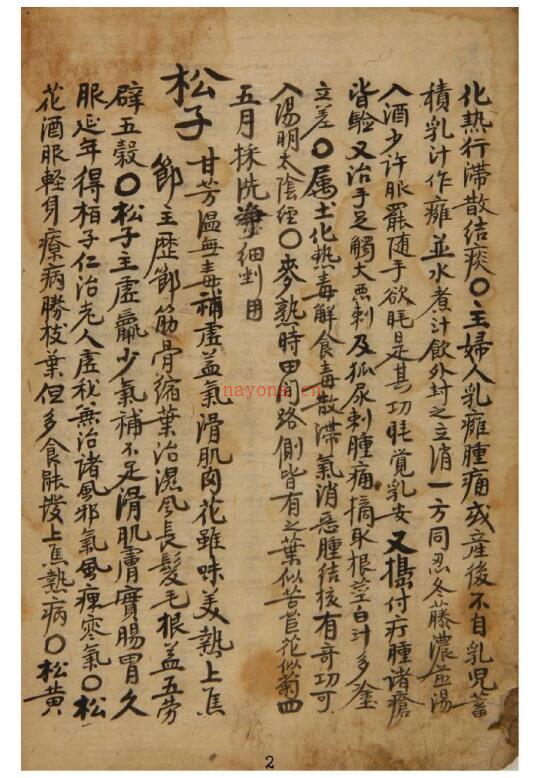 化热行滞散结痰〇主婦人乳癰腫痛或産後不自乳児蓄
積乳汁作癰並水煮汁飲外封之立消一方同忍冬藤濃煎湯
入酒少許服罷随手欲眊是其功眊覚乳安又搵付疔腫諸瘡
皆驗又治手足觸大悪刺及狐尿刺腫痛摘取根莖白汁多塗
立差〇属土化熱毒解食毒散滯氣消惡腫結核有奇功可
入陽明太陰經〇麥熟時田间路側皆有之葉似苦苣花似菊四
五月採洗淨細剉用
松子 甘芳温無毒補虚益氣滑肌肉花雖味美熱上焦
節主歷節筋骨縮葉治濕風長髮毛根益五劳
辟五穀〇松子主虚羸少氣補不足滑肌膚實腸胃久
服延年得栢子仁治老人虚秘無治諸風邪氣風痺寒氣〇松
花酒服軽身療病勝枝葉但多食能发上焦熱病〇松黄
nayona.cn
2